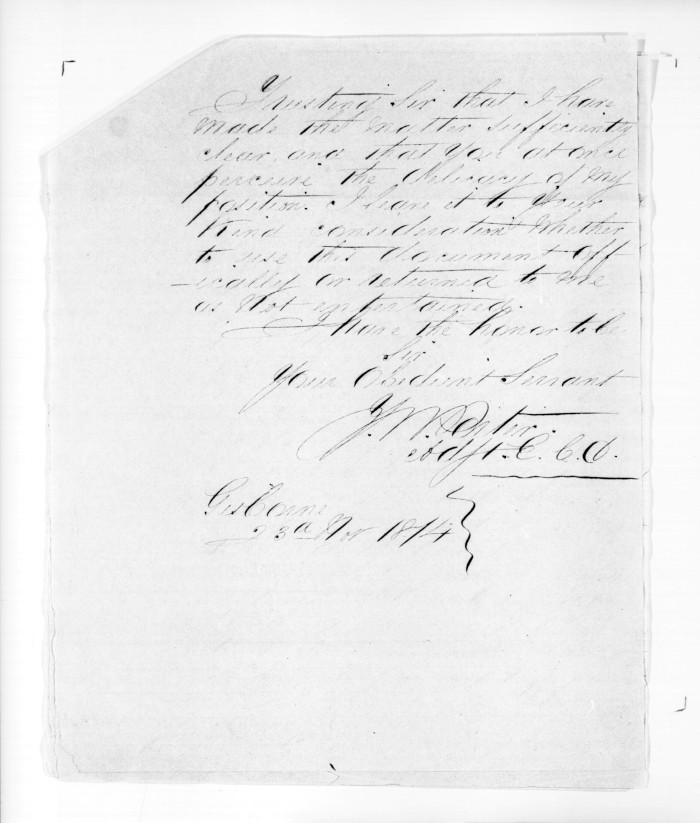 Trusting Sir that I have
made this matter sufficiently
clear and that You at once
perceive the delicacy of My
position. I leave it to Your
Kind consideration Whether
to use this document off
-icially or returned to me
as Not entertained.
I have the honor to be
Sir
Your Obedient Servant
Adjt. E. C. C.
Gisborne
23d Nov 1874